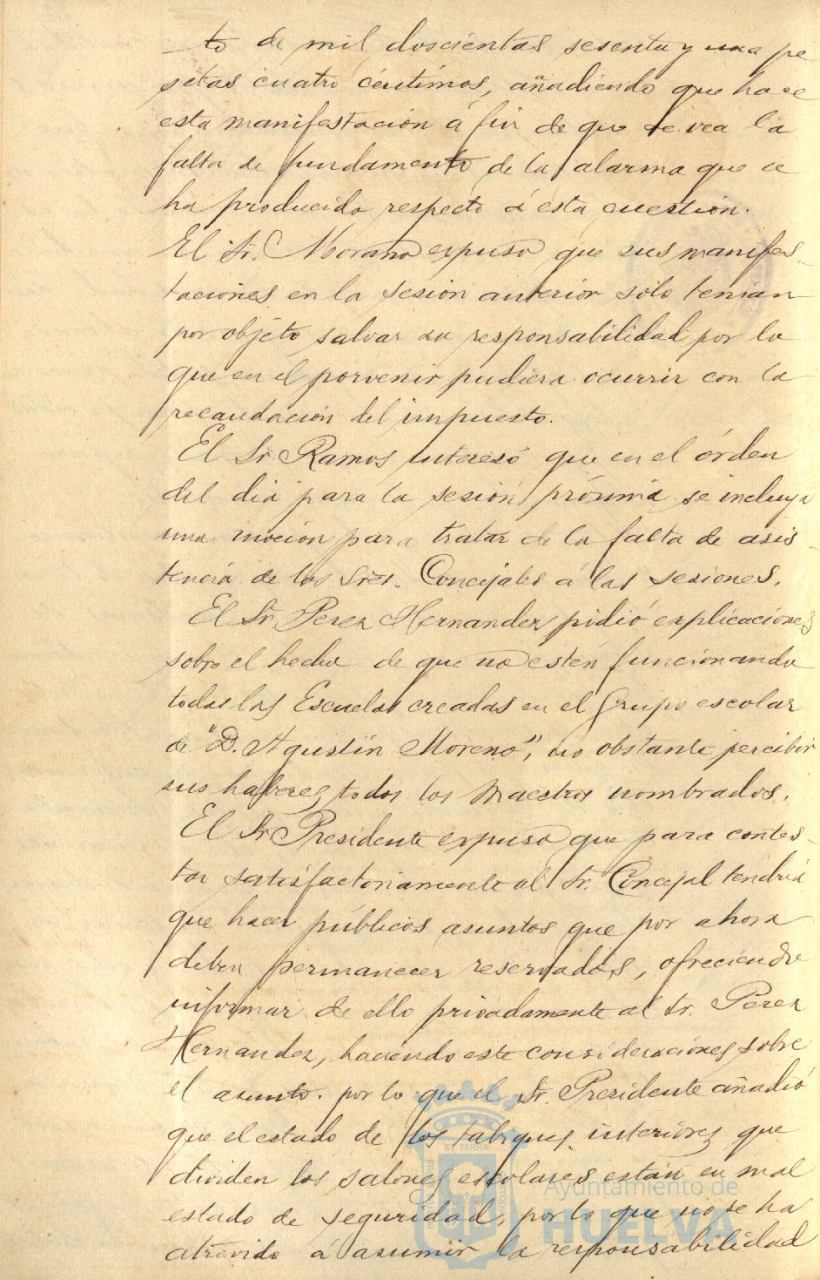 to de mil doscientas sesenta y una pe
setas cuatro céntimos, añadiendo que hace
esta manifestación á fin de que se vea la
falta de fundamento de la alarma que se
ha producido respecto á esta cuestión.
El Sr. Morano expuso que sus manifes-
taciones en la sesión anterior sólo tenian
por objeto salvar su responsabilidad por lo
que en el porvenir pudiera ocurrir con la
recaudación del impuesto.
El Sr Ramos interesó que en el órden
del dia para la sesión próxima se incluya
una moción para tratar de la falta de asis
tencia de los Sres. Concejales á las sesiones.
El Sr. Perez Hernandez pidió explicaciones
sobre el hecho de que no estén funcionando
todas las Escuelas creadas en el Grupo escolar
de "D. Agustín Moreno", no obstante percibir
sus haberes todos los Maestros nombrados.
El Sr Presidente expuso que para contes-
tar satisfactoriamente al Sr. Concejal tendria
que hacer públicos asuntos que por ahora
deben permanecer reservados, ofreciendo
informar de ello privadamente al Sr. Perez
Hernandez, haciendo este consideraciones sobre
el asunto. por lo que el Sr. Presidente añadió
que el estado de los tabiques interiores que
dividen los salones escolares están en mal
estado de seguridad, por lo que no se ha
atrevido á asumir la responsabilidad
Ayuntamiento de
HUELVA